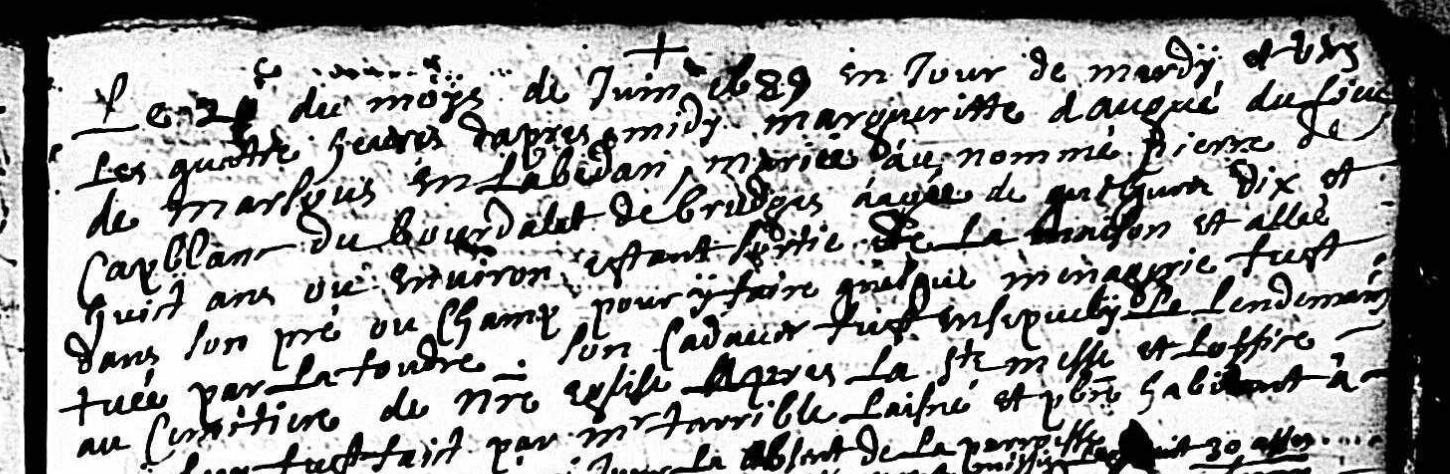 Le 2 du moÿs de Juin 1689 en Jour de mardÿ et vers
les quatre heures dapres midy margueritte dauqué du lieu
de marsous en Labedan, mariée au nommé pierre de
Capblanc du bourdalat de brudges aagée de quelques dix et
huict ans ou environ estant sortie de la maison et allée
dans son pré ou champ pour ÿ faire quelque menagerie fust
tuée par la foudre. son cadaver fust ensepuely le lendemain
au Cimetiere de nre eglise apres la ste messe et loffice
fust faict par mr tarrible laisné et pbre habitant à
de la parroisse